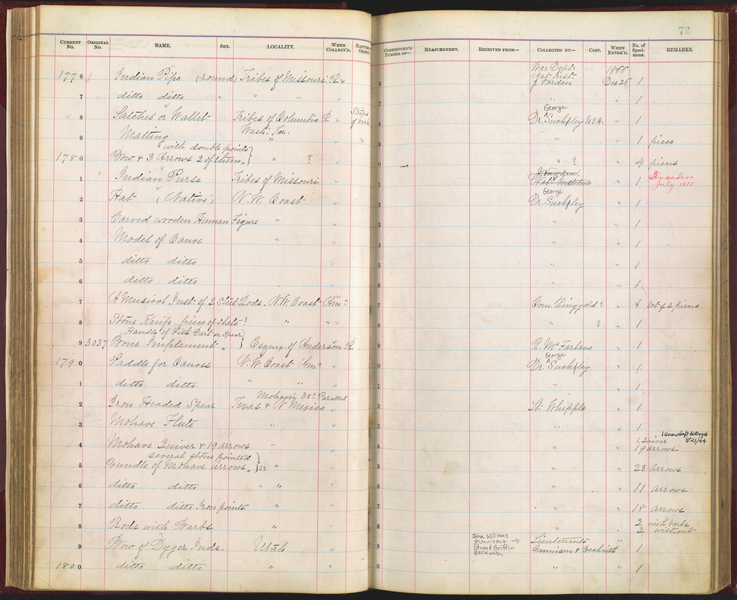 73
CURRENT No. ORIGINAL No. NAME. SEX. LOCALITY. WHEN COLLECT'D. MEASUREMENT. RECEIVED FROM— COLLECTED BY— COST. WHEN ENTER'D. No. of Specimens. REMARKS.
War Dept. 1866
1776 Indian Pipe (round) Tribes of Missouri R. J. Varden Dec 28 1
7 ditto ditto " " " " 1
George
8 Satchel or Wallet Tribes of Columbia R. Dr. Suckley U.S.A. " 1
Wash. Ter.
9 Matting " " " 1 piece
with double points
1780 Bow & 3 Arrows 2 of them " ? " ? " 4 pieces
1 Indian Purse Tribes of Missouri " 1
July 1885
George
2 Hat (Native) N.W. Coast Dr. Suckley " 1
3 Carved wooden Human Figure " " " 1
4 Model of Canoe " " " 1
5 ditto ditto " " " 1
6 ditto ditto " " " 1
7 A Musical Inst. of 2 Steel Rods. N.W. Coast Am? Com. Ringgold? " 4 set of 4 pieces
8 Stone Knife piece of slate? " " ? " 1
Handle of Fish Gent or Spear
9 3037 Bone Implement Esquimx. of Anderson R. R. McFarlane " 1
George
1790 Paddle for Canoes N.W. Coast Am? Dr. Suckley " 1
1 ditto ditto " " " " 1
Mohavie 35° Parallel
2 Iron Headed Spear Texas & N. Mexico Lt. Whipple " 1
3 Mohave Flute " " " 1
4 Mohave Quiver & 19 arrows " " " 1 Quiver
19 arrows
several stone pointed
5 Bundle of Mohave arrows 23 " " " 23 arrows
6 ditto ditto " " " 11 arrows
7 ditto ditto Iron points " " " 18 arrows
8 Rods with Barbs " " " 2 with barbs
2 without
John Williams
Gunnison &
Edward Griffin
Beckwith
9 Bow of Dyger Inds. Utah Lieutenants Gunnison & Beckwith " 1
1800 ditto ditto " " " 1